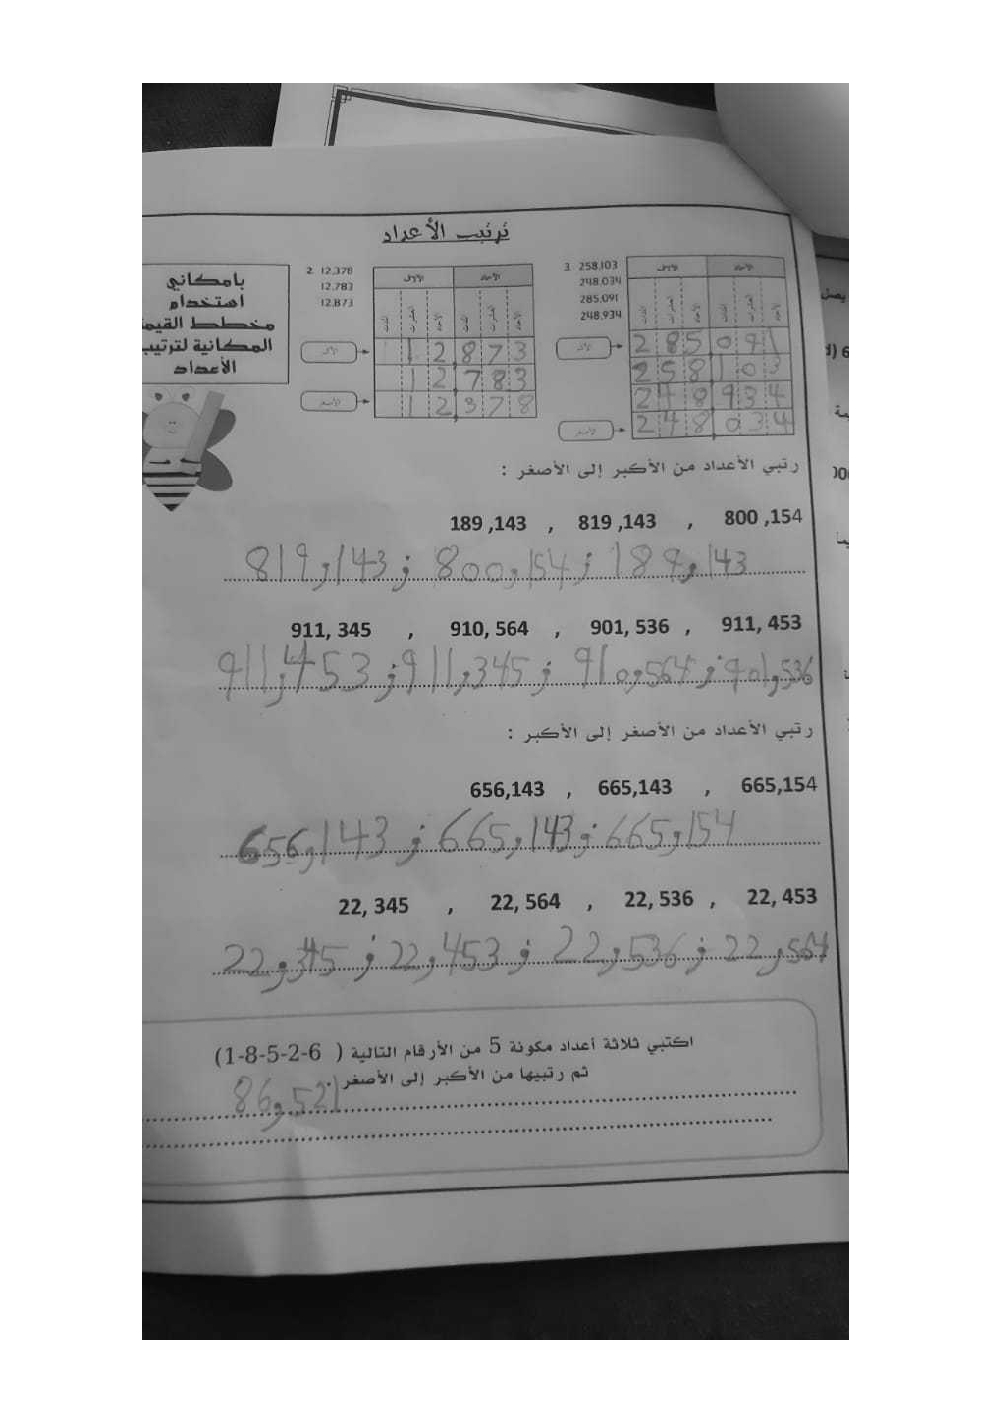 ترتيب الأعداد
بإمكاني
استخدام
مخطط القيمة
المكانية لترتيب
الأعداد
2. 12,378
12,783
12,873
الألوف الآحاد
المئات العشرات الآحاد المئات العشرات الآحاد
الأكبر
1 2 , 8 7 3
1 2 7 8 3
الأصغر
1 2 , 3 7 8
3. 258,103
248,034
285,091
248,934
الألوف الآحاد
المئات العشرات الآحاد المئات العشرات الآحاد
الأكبر
2 8 5 0 9 1
2 5 8 1 0 3
2 4 8 9 3 4
الأصغر
2 4 8 , 0 3 4
رتبي الأعداد من الأكبر إلى الأصغر :
189 ,143 , 819 ,143 , 800 ,154
819,143 ; 800,154 ; 189,143
911, 345 , 910, 564 , 901, 536 , 911, 453
911,453 ; 911,345 ; 910,564 ; 901,536
رتبي الأعداد من الأصغر إلى الأكبر :
656,143 , 665,143 , 665,154
656,143 ; 665,143 ; 665,154
22, 345 , 22, 564 , 22, 536 , 22, 453
22,345 ; 22,453 ; 22,536 ; 22,564
اكتبي ثلاثة أعداد مكونة 5 من الأرقام التالية ( 6-2-5-8-1)
ثم رتبيها من الأكبر إلى الأصغر .
86,521